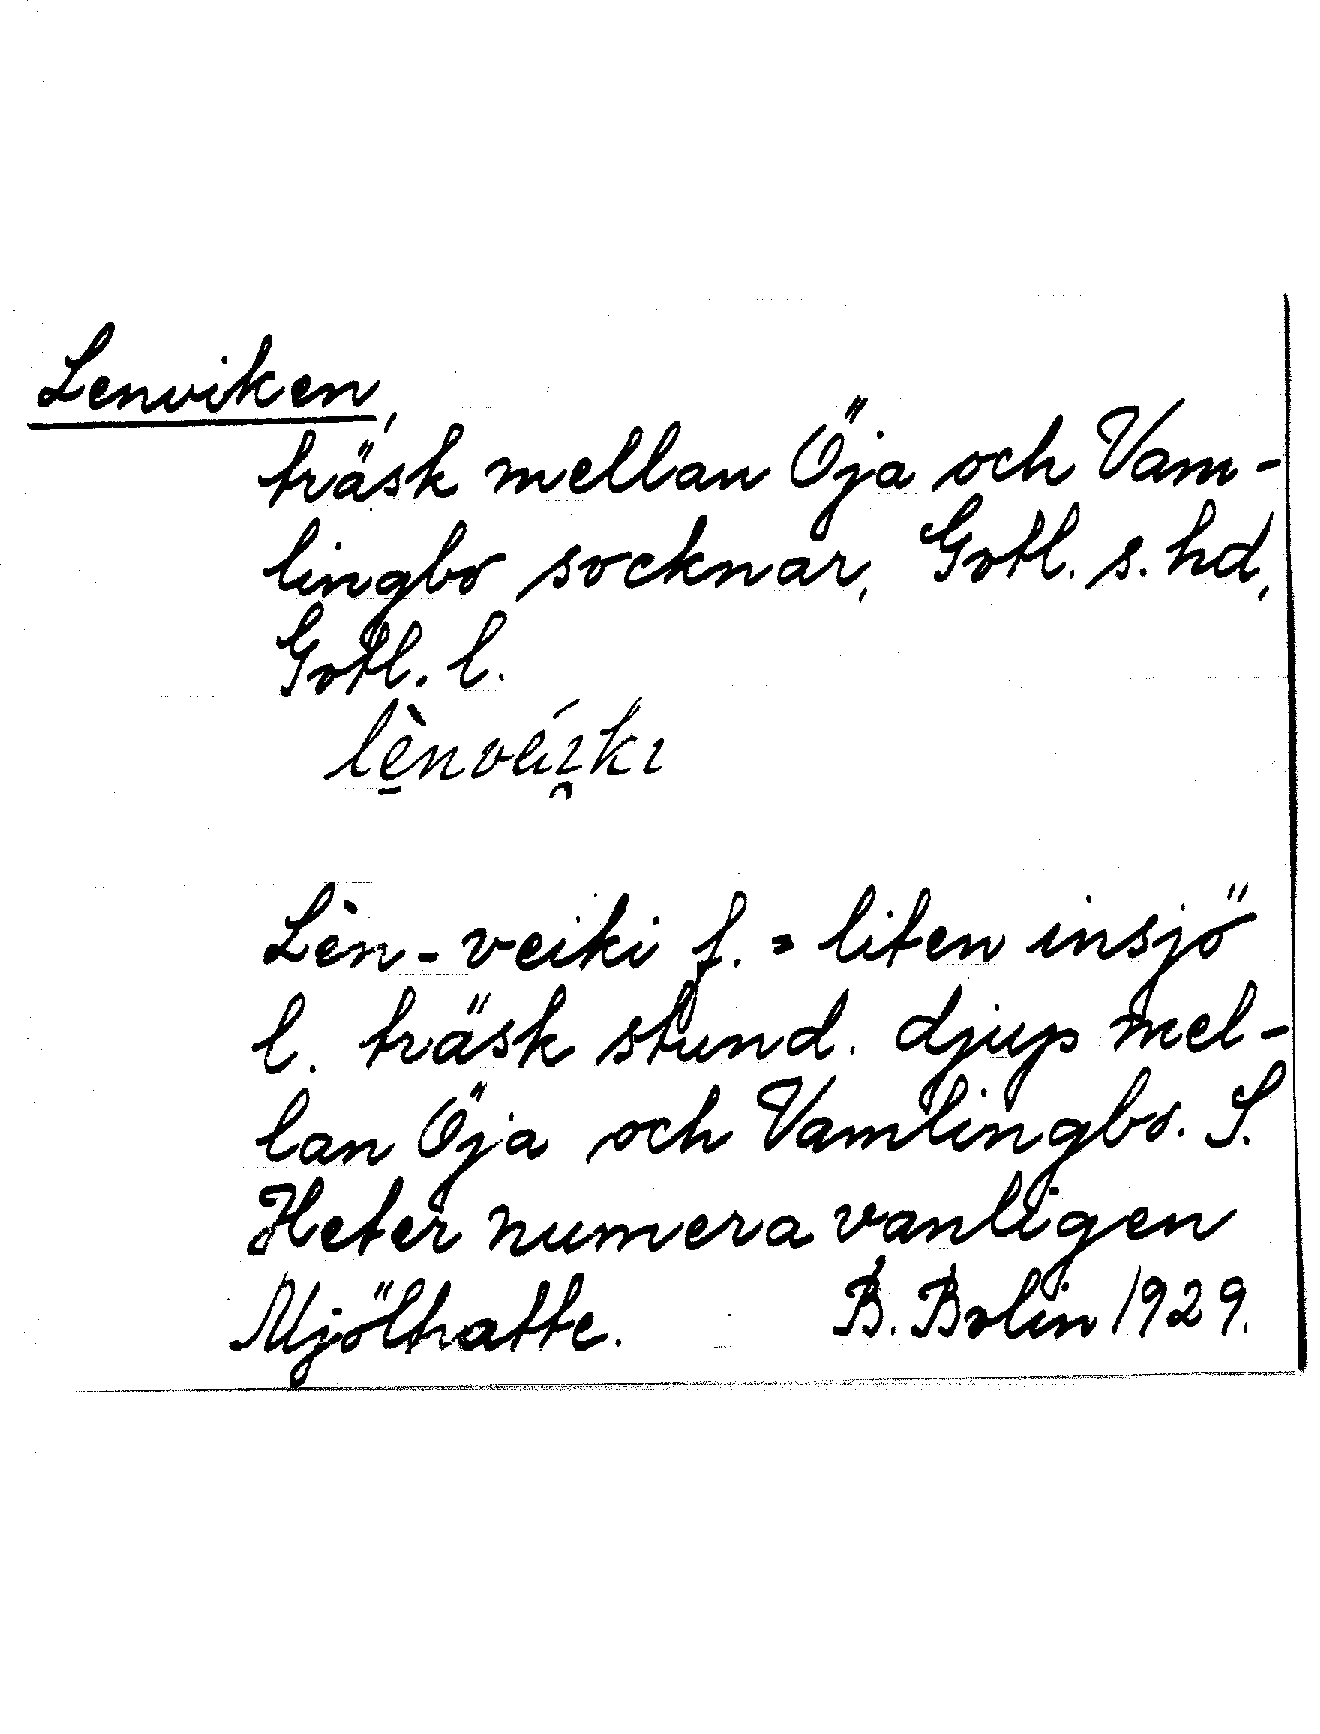 Lenviken,
träsk mellan Öja och Vam-
lingbo socknar, Gotl. s. hd,
Gotl. l.
lè̠nvéı̯kı
Lèn-veiki f. = liten insjö
l. träsk stund. djup mel-
lan Öja och Vamlingbo. S.
Heter numera vanligen
Mjölhatte. B. Bolin 1929.